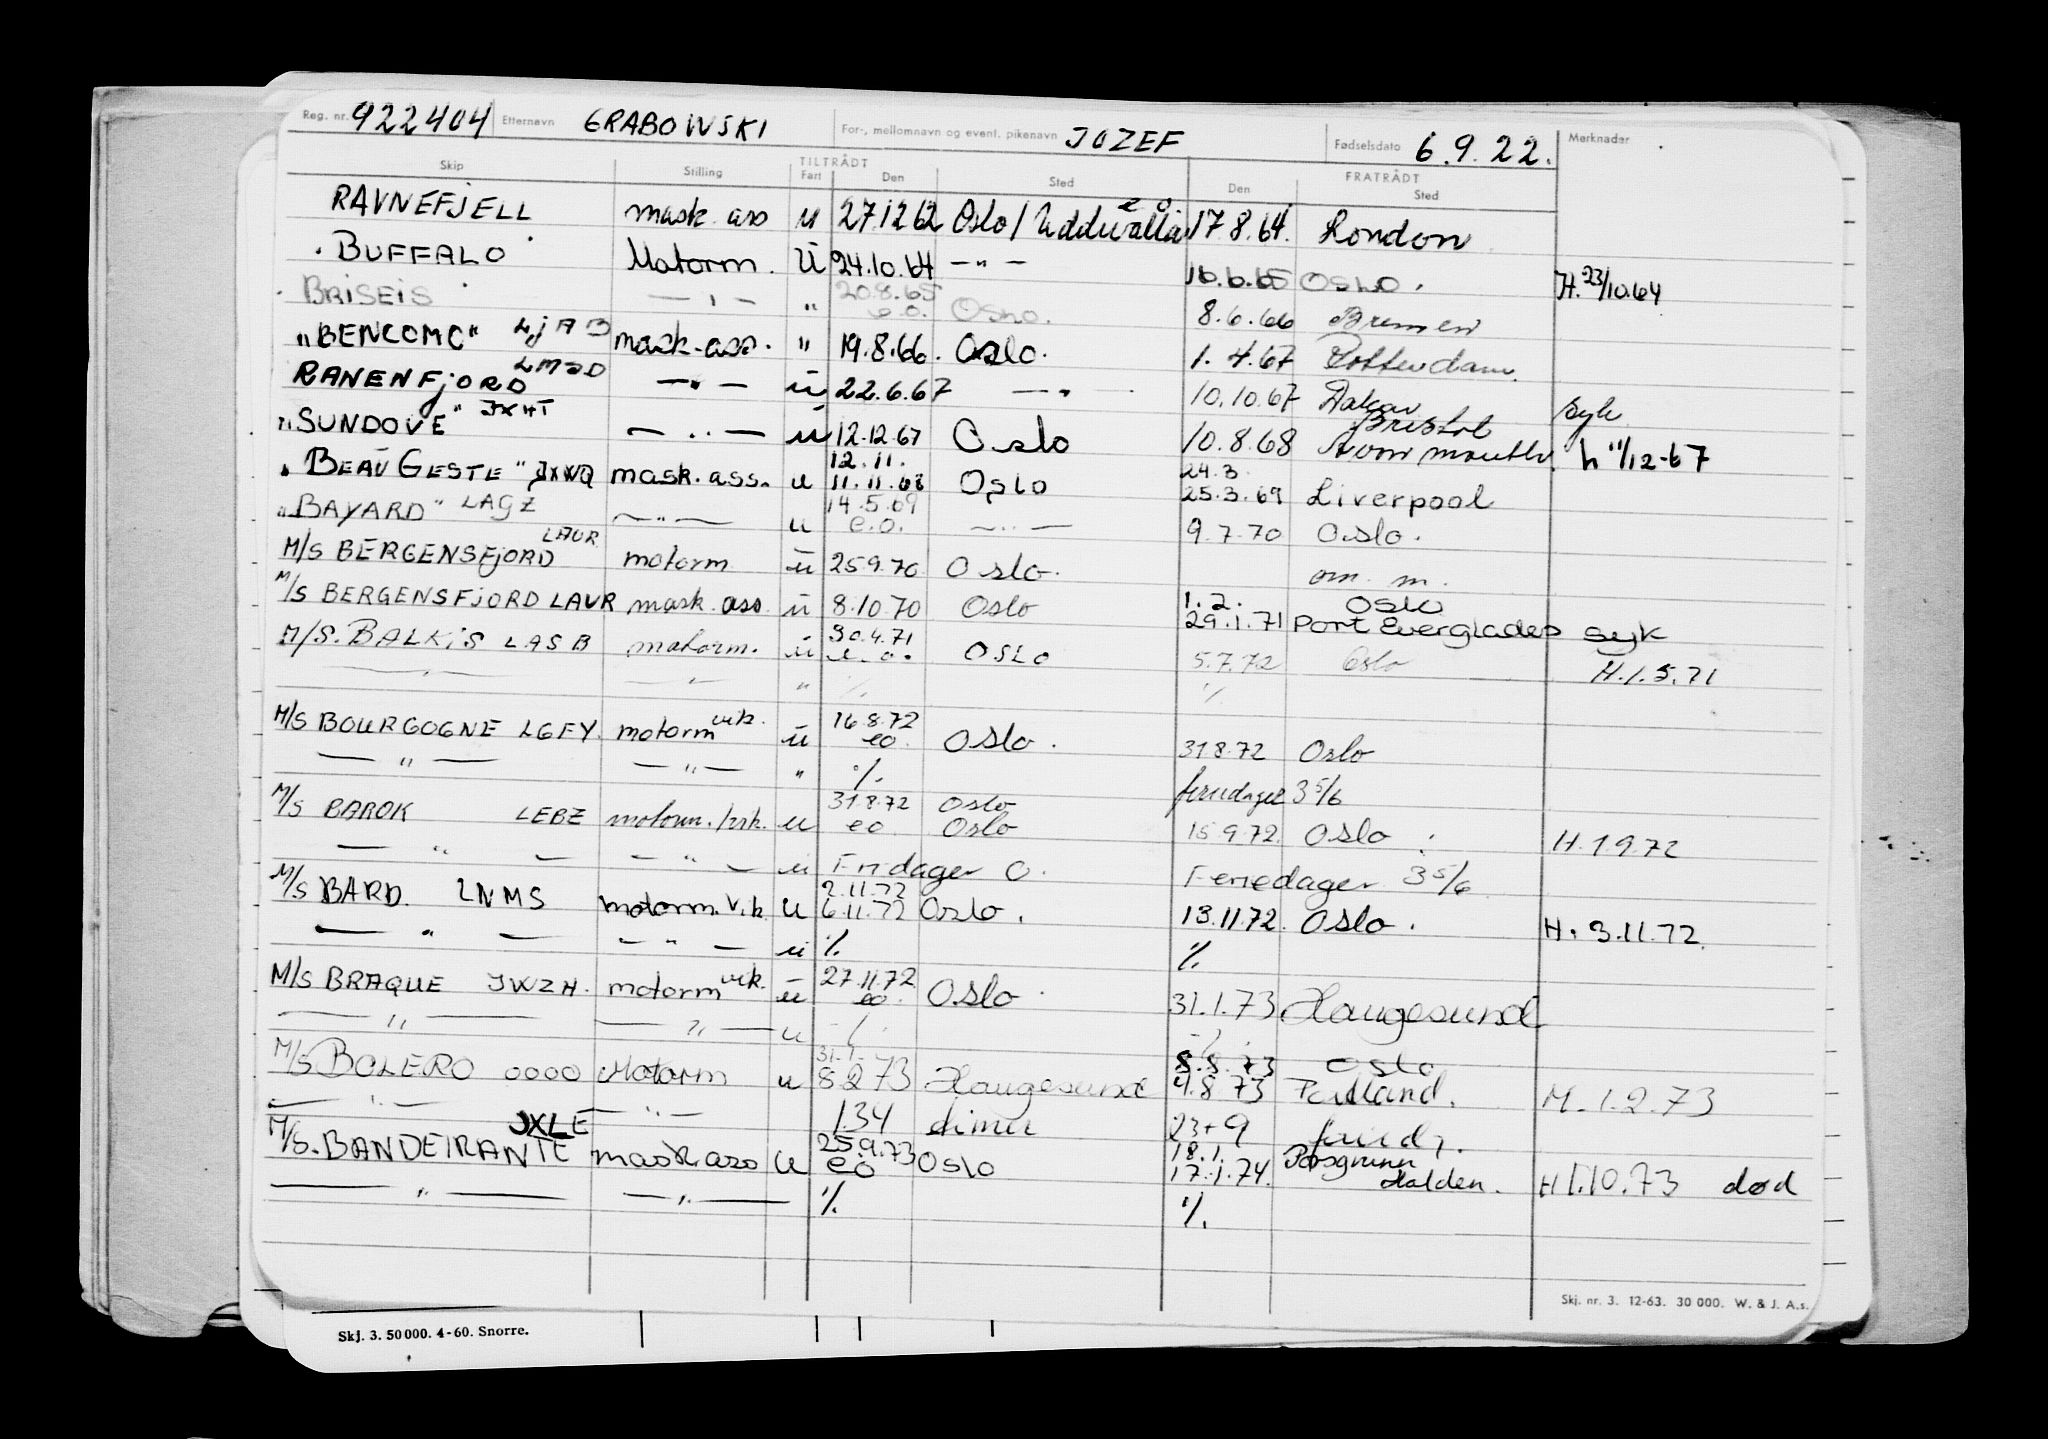 Reg. nr. 922404 Etternavn GRABOWSKI For-, mellomnavn og event. pikenavn JOZEF Fødselsdato 6.9.22. Merknader
Skip Stilling TILTRÅDT Fart Den Sted FRATRÅDT Den Sted
RAVNEFJELL mask. ass u 27.12 62 Oslo / Uddevalla e.o. 17.8.64. London
BUFFALO Motorm. ü 24.10.64 —"— 16.6.65 OSLO. H. 23/10.64
BRISEIS —"— " 20.8.65 e.o. OSLO. 8.6.66 Bremen
"BENCOMO" LJAB mask-ass. " 19.8.66. Oslo. 1.4.67 Rotterdam.
RANENFJORD LMSD —"— ü 22.6.67 —"— 10.10.67 Dakar syk
"SUNDOVE" JXHT —"— u 12.12.67 Oslo 10.8.68 Bristol Avonmouth. h 11/12-67
"BEAU GESTE" JXWQ mask. ass. u 12.11. 11.11.68 Oslo 24.3. 25.3.69 Liverpool
"BAYARD" LAGZ —"— u 14.5.69 e.o. —"— 9.7.70 Oslo.
M/S BERGENSFJORD LAUR motorm ü 25.9.70 Oslo. om. m.
M/S BERGENSFJORD LAUR mask. ass. ü 8.10.70 Oslo 1.2. Oslo 29.1.71 Port Everglades syk
M/S. BALKIS LASB motorm. ü 30.4.71 e.o. OSLO 5.7.72 Oslo H.1.5.71
—"— —"— " ./. ./.
M/S BOURGOGNE LGFY. motorm vik. ü 16.8.72 eo. Oslo. 31.8.72 Oslo
—"— —"— " ./. feriedager 3 5/6
M/S BAROK LEBZ motorm./vik. u 31.8.72 eo. Oslo Oslo 15.9.72. Oslo. H.1.9.72
—"— —"— ü Fridager 0. Feriedager 3 5/6
M/S BARD. LNMS motorm. vik. u 2.11.72 6.11.72 Oslo. 13.11.72. Oslo. H. 3.11.72.
—"— —"— ü ./. ./.
M/S BRAQUE JWZH. motorm vik. ü 27.11.72 eo. Oslo 31.1.73 Haugesund
—"— —"— u -/. -/.
M/S BOLERO 0000 Motorm u 31.1. 8.2.73 Haugesund 8.8.73 Oslo 4.8.73 Portland. M.1.2.73
—"— —"— 134 timer 23+9
M/S. BANDEIRANTE JXLE mask. ass u 25.9.73 eo Oslo 18.1. Porsgrunn 17.1.74. Halden. H 1.10.73 død
—"— —"— ./. ./.
Skj. nr. 3. 12-63. 30 000. W. & J. A.s.
Skj. 3. 50 000. 4-60. Snorre.